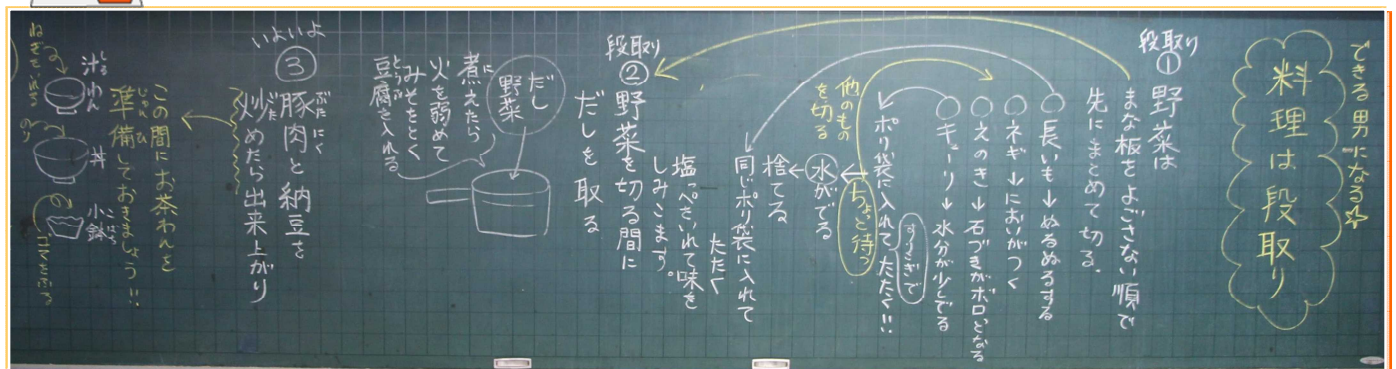 できる男になる
料理は段取り
段取り
①
野菜は
まな板をよごさない順で
先にまとめて切る。
長いも→ぬるぬるする
ネギ→においがつく
えのき→石づきがボロボロなる
キューリ→水分が少しでる
すりこぎで
ポリ袋に入れてたたく!!
ちょっと待つ
他のもの
を切る
水がでる
捨てる
同じポリ袋に入れて
たたく
塩っぺさいれて味を
しみこます。
段取り
②
野菜を切る間に
だしを取る
だし
野菜
煮えたら
に
火を弱めて
みそをとく
豆腐を入れる
とうふ
いよいよ
③
豚肉と納豆を
ぶたにく
炒めたら出来上がり
この間にお茶わんを
準備しておきましょう!!
じゅんび
汁わん
しる
ねぎをいれる
丼
のり
小鉢
こばち
ゴマをふる